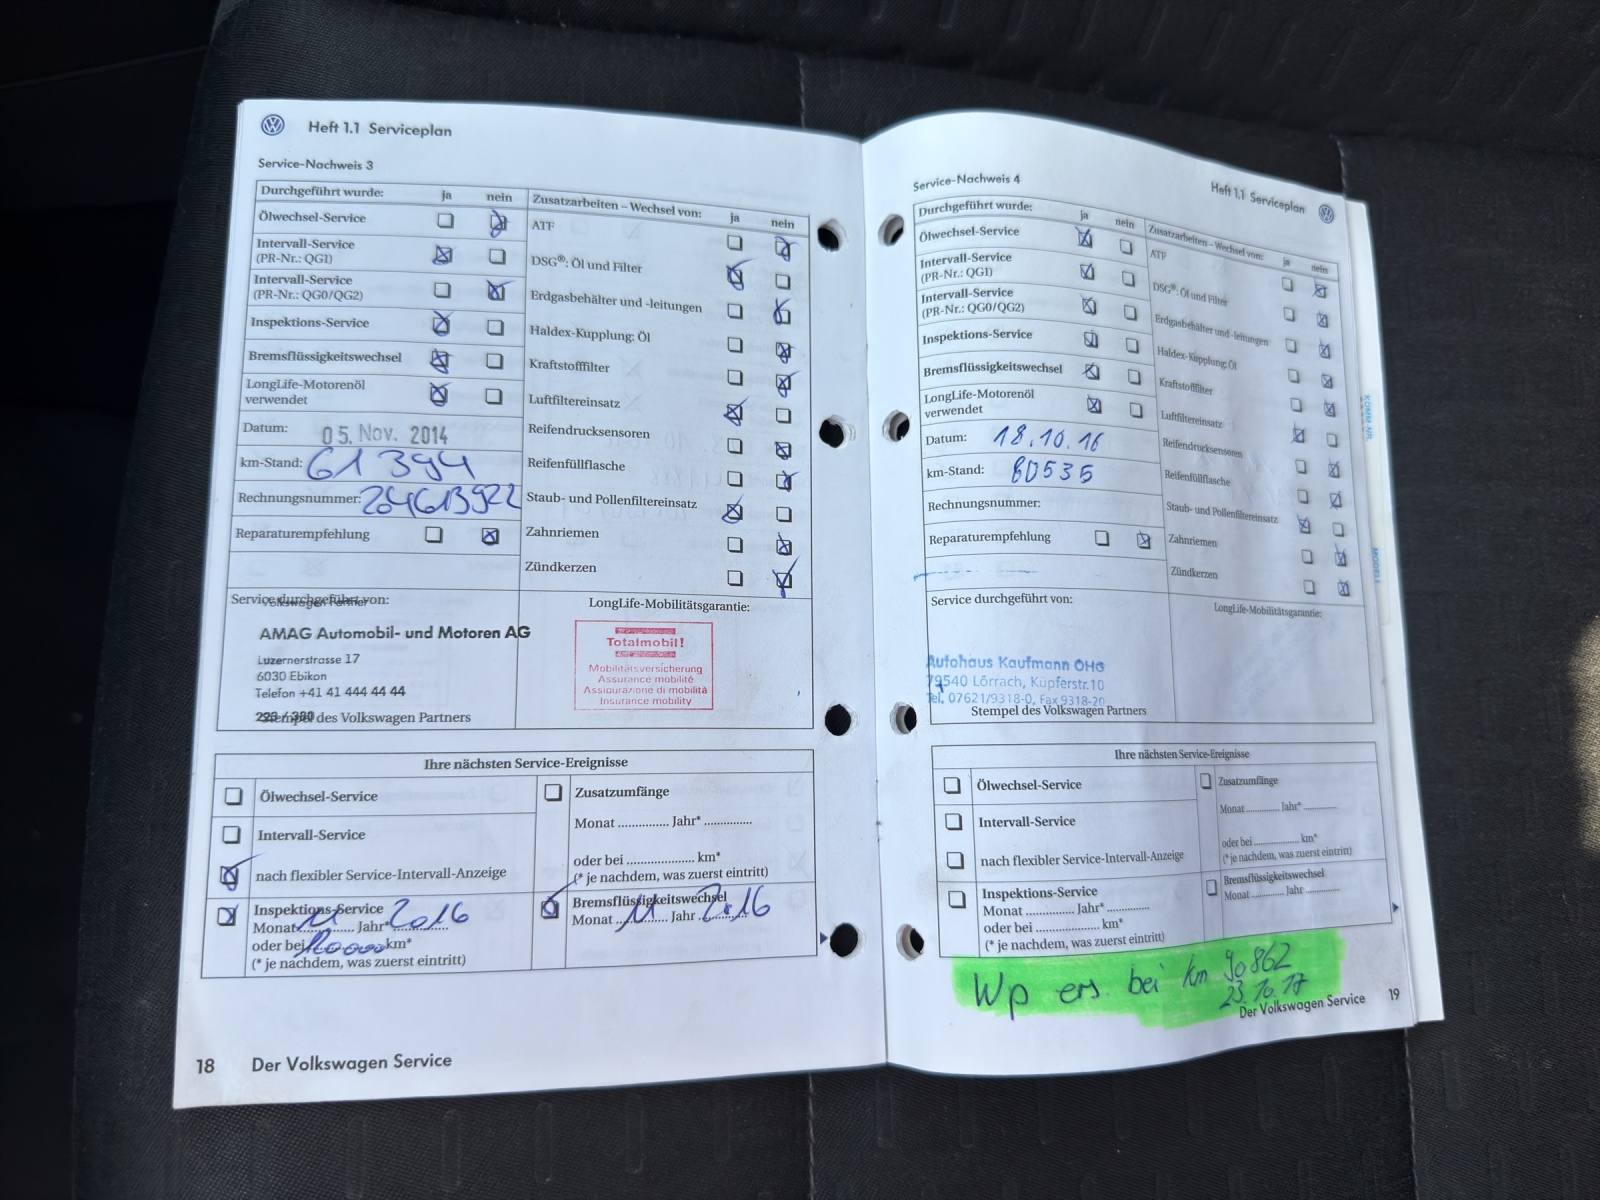 Heft 1.1 Serviceplan
Service-Nachweis 3
Durchgeführt wurde: ja nein
Ölwechsel-Service
Intervall-Service
(PR-Nr.: QG1)
Intervall-Service
(PR-Nr.: QG0/QG2)
Inspektions-Service
Bremsflüssigkeitswechsel
LongLife-Motorenöl
verwendet
Datum: 05. Nov. 2014
km-Stand: 61394
Rechnungsnummer:
Reparaturempfehlung
Zusatzarbeiten – Wechsel von: ja nein
ATF
DSG®: Öl und Filter
Erdgasbehälter und -leitungen
Haldex-Kupplung: Öl
Kraftstofffilter
Luftfiltereinsatz
Reifendrucksensoren
Reifenfüllflasche
Staub- und Pollenfiltereinsatz
Zahnriemen
Zündkerzen
Service durchgeführt von:
Volkswagen Partner
AMAG Automobil- und Motoren AG
Luzernerstrasse 17
6030 Ebikon
Telefon +41 41 444 44 44
Stempel des Volkswagen Partners
LongLife-Mobilitätsgarantie:
Totalmobil!
Mobilitätsversicherung
Assurance mobilité
Assicurazione di mobilità
Insurance mobility
Ihre nächsten Service-Ereignisse
Ölwechsel-Service
Intervall-Service
nach flexibler Service-Intervall-Anzeige
Inspektions-Service
Monat 11 Jahr* 2016
oder bei km*
(* je nachdem, was zuerst eintritt)
Zusatzumfänge
Monat ............... Jahr* ...............
oder bei ..................... km*
(* je nachdem, was zuerst eintritt)
Bremsflüssigkeitswechsel
Monat 11 Jahr 2016
18 Der Volkswagen Service
Service-Nachweis 4
Heft 1.1 Serviceplan
Durchgeführt wurde: ja nein
Ölwechsel-Service
Intervall-Service
(PR-Nr.: QG1)
Intervall-Service
(PR-Nr.: QG0/QG2)
Inspektions-Service
Bremsflüssigkeitswechsel
LongLife-Motorenöl
verwendet
Datum: 18.10.16
km-Stand: 80535
Rechnungsnummer:
Reparaturempfehlung
Zusatzarbeiten – Wechsel von: ja nein
ATF
DSG®: Öl und Filter
Erdgasbehälter und -leitungen
Haldex-Kupplung: Öl
Kraftstofffilter
Luftfiltereinsatz
Reifendrucksensoren
Reifenfüllflasche
Staub- und Pollenfiltereinsatz
Zahnriemen
Zündkerzen
Service durchgeführt von:
Autohaus Kaufmann OHG
79540 Lörrach, Küpferstr.10
Tel. 07621/9318-0, Fax 9318-20
Stempel des Volkswagen Partners
LongLife-Mobilitätsgarantie:
Ihre nächsten Service-Ereignisse
Ölwechsel-Service
Intervall-Service
nach flexibler Service-Intervall-Anzeige
Inspektions-Service
Monat ............... Jahr* ...............
oder bei ............... km*
(* je nachdem, was zuerst eintritt)
Zusatzumfänge
Monat ............ Jahr* ............
oder bei .................. km*
(* je nachdem, was zuerst eintritt)
Bremsflüssigkeitswechsel
Monat ............ Jahr ............
Wp ers. bei km 90862
23.10.17
Der Volkswagen Service 19
KOMM-NR.
MODELL